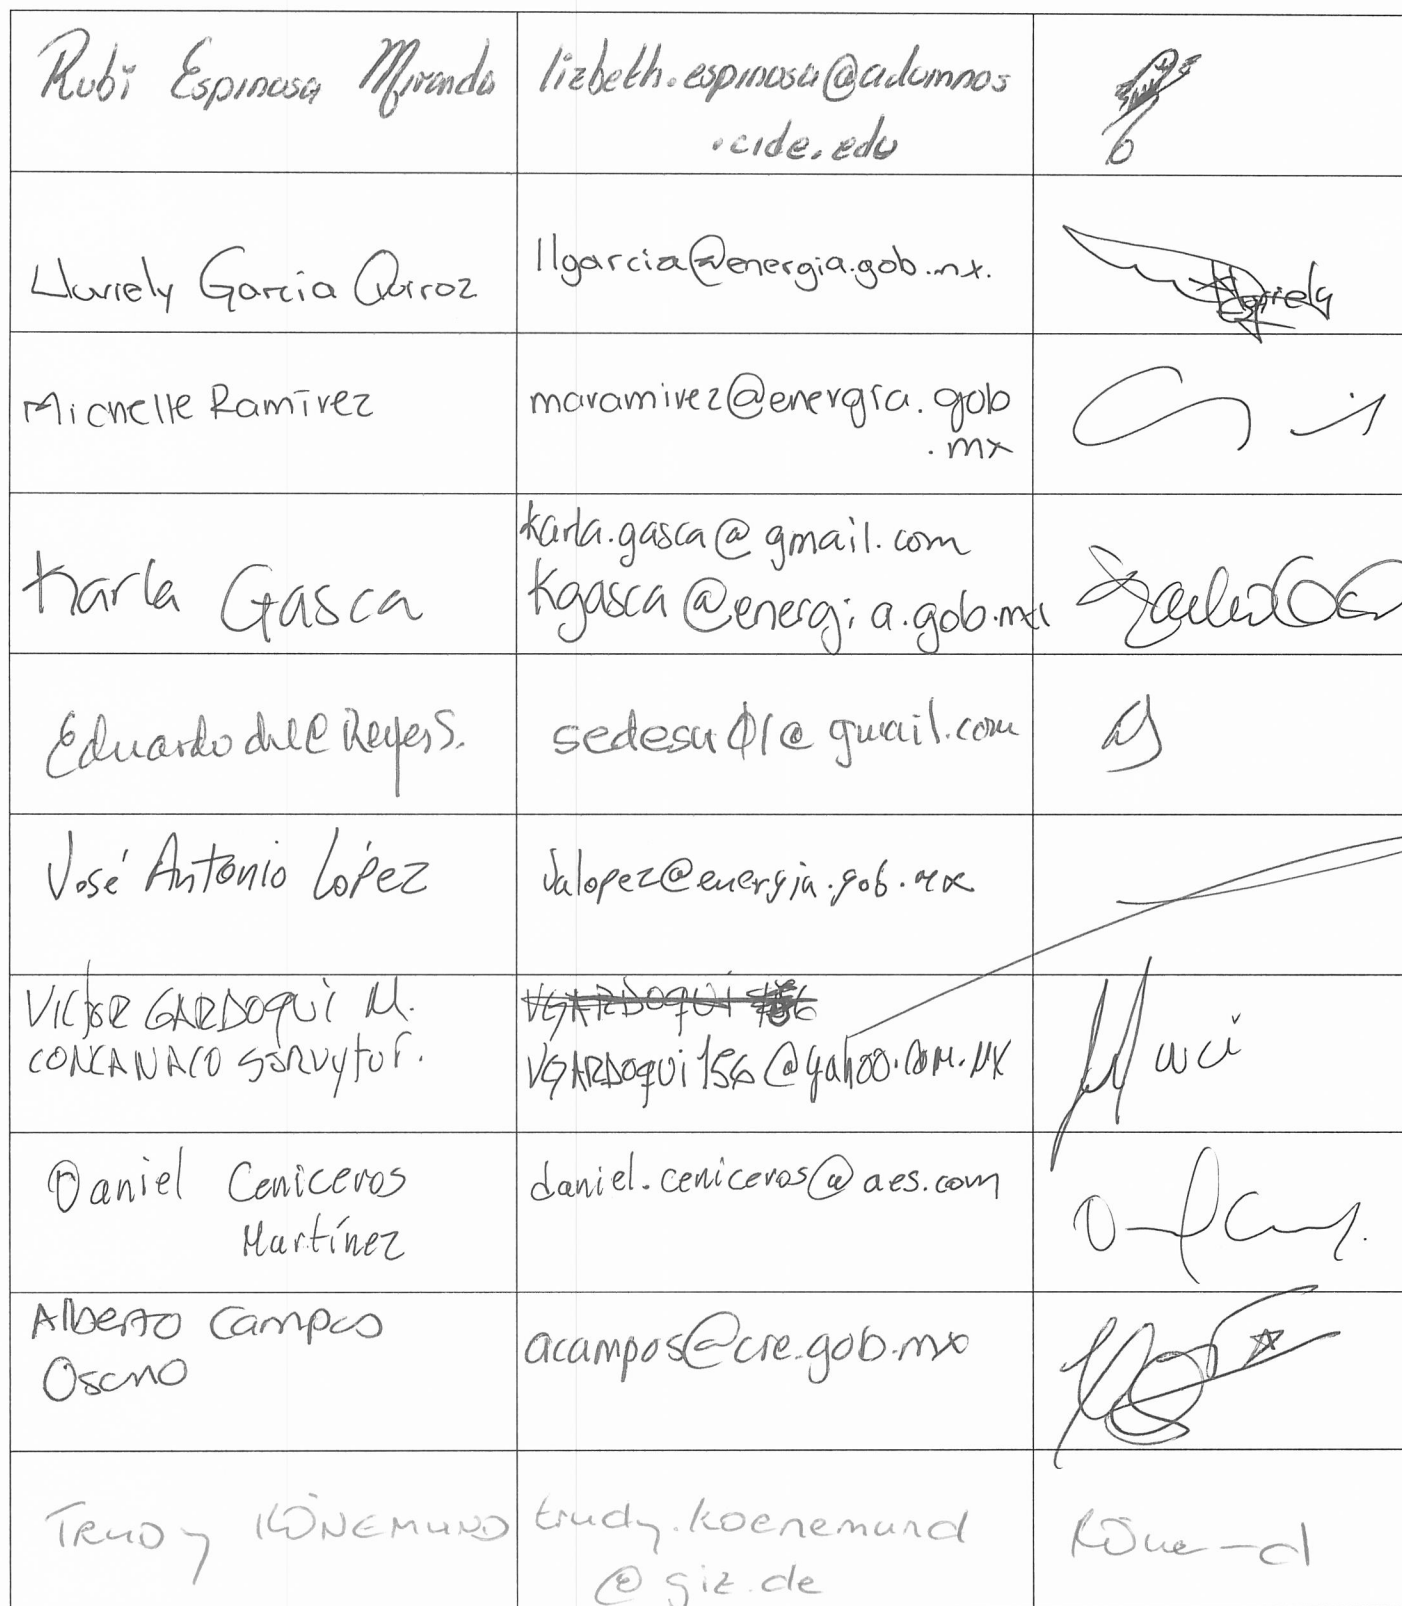 Rubí Espinosa Miranda
lizbeth.espinosa@alumnos
.cide.edu
Llariely Garcia Quiroz
llgarcia@energia.gob.mx.
Michelle Ramírez
maramirez@energía.gob
.mx
Karla Gasca
karla.gasca@gmail.com
kgasca@energia.gob.mx
Eduardo del C Reyes S.
sedesu01@gmail.com
José Antonio López
Jalopez@energia.gob.mx
VICTOR GARDOQUI M.
CONCANACO SERVYTUR.
VGARDOQUI 156
VGARDOQUI156@yahoo.com.MX
Daniel Ceniceros
Martínez
daniel.ceniceros@aes.com
Alberto Campos
acampos@cre.gob.mx
TRUDY KÖNEMUND
trudy.koenemund
@giz.de